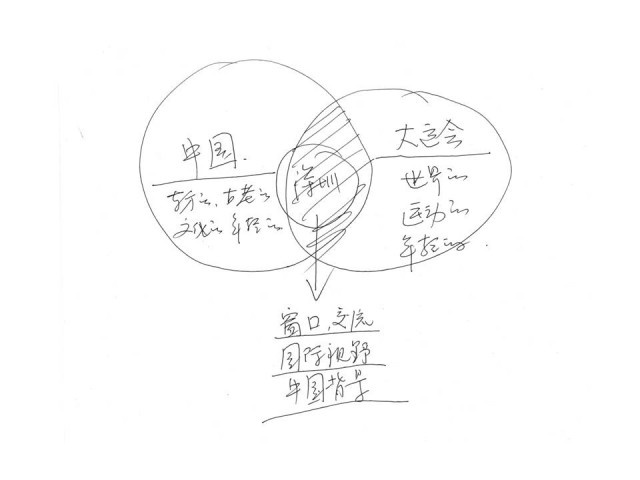 中国.
东方的、古老的
文化的 年轻的
深圳
大运会
世界的
运动的
年轻的.
窗口、交流
国际视野
中国背景